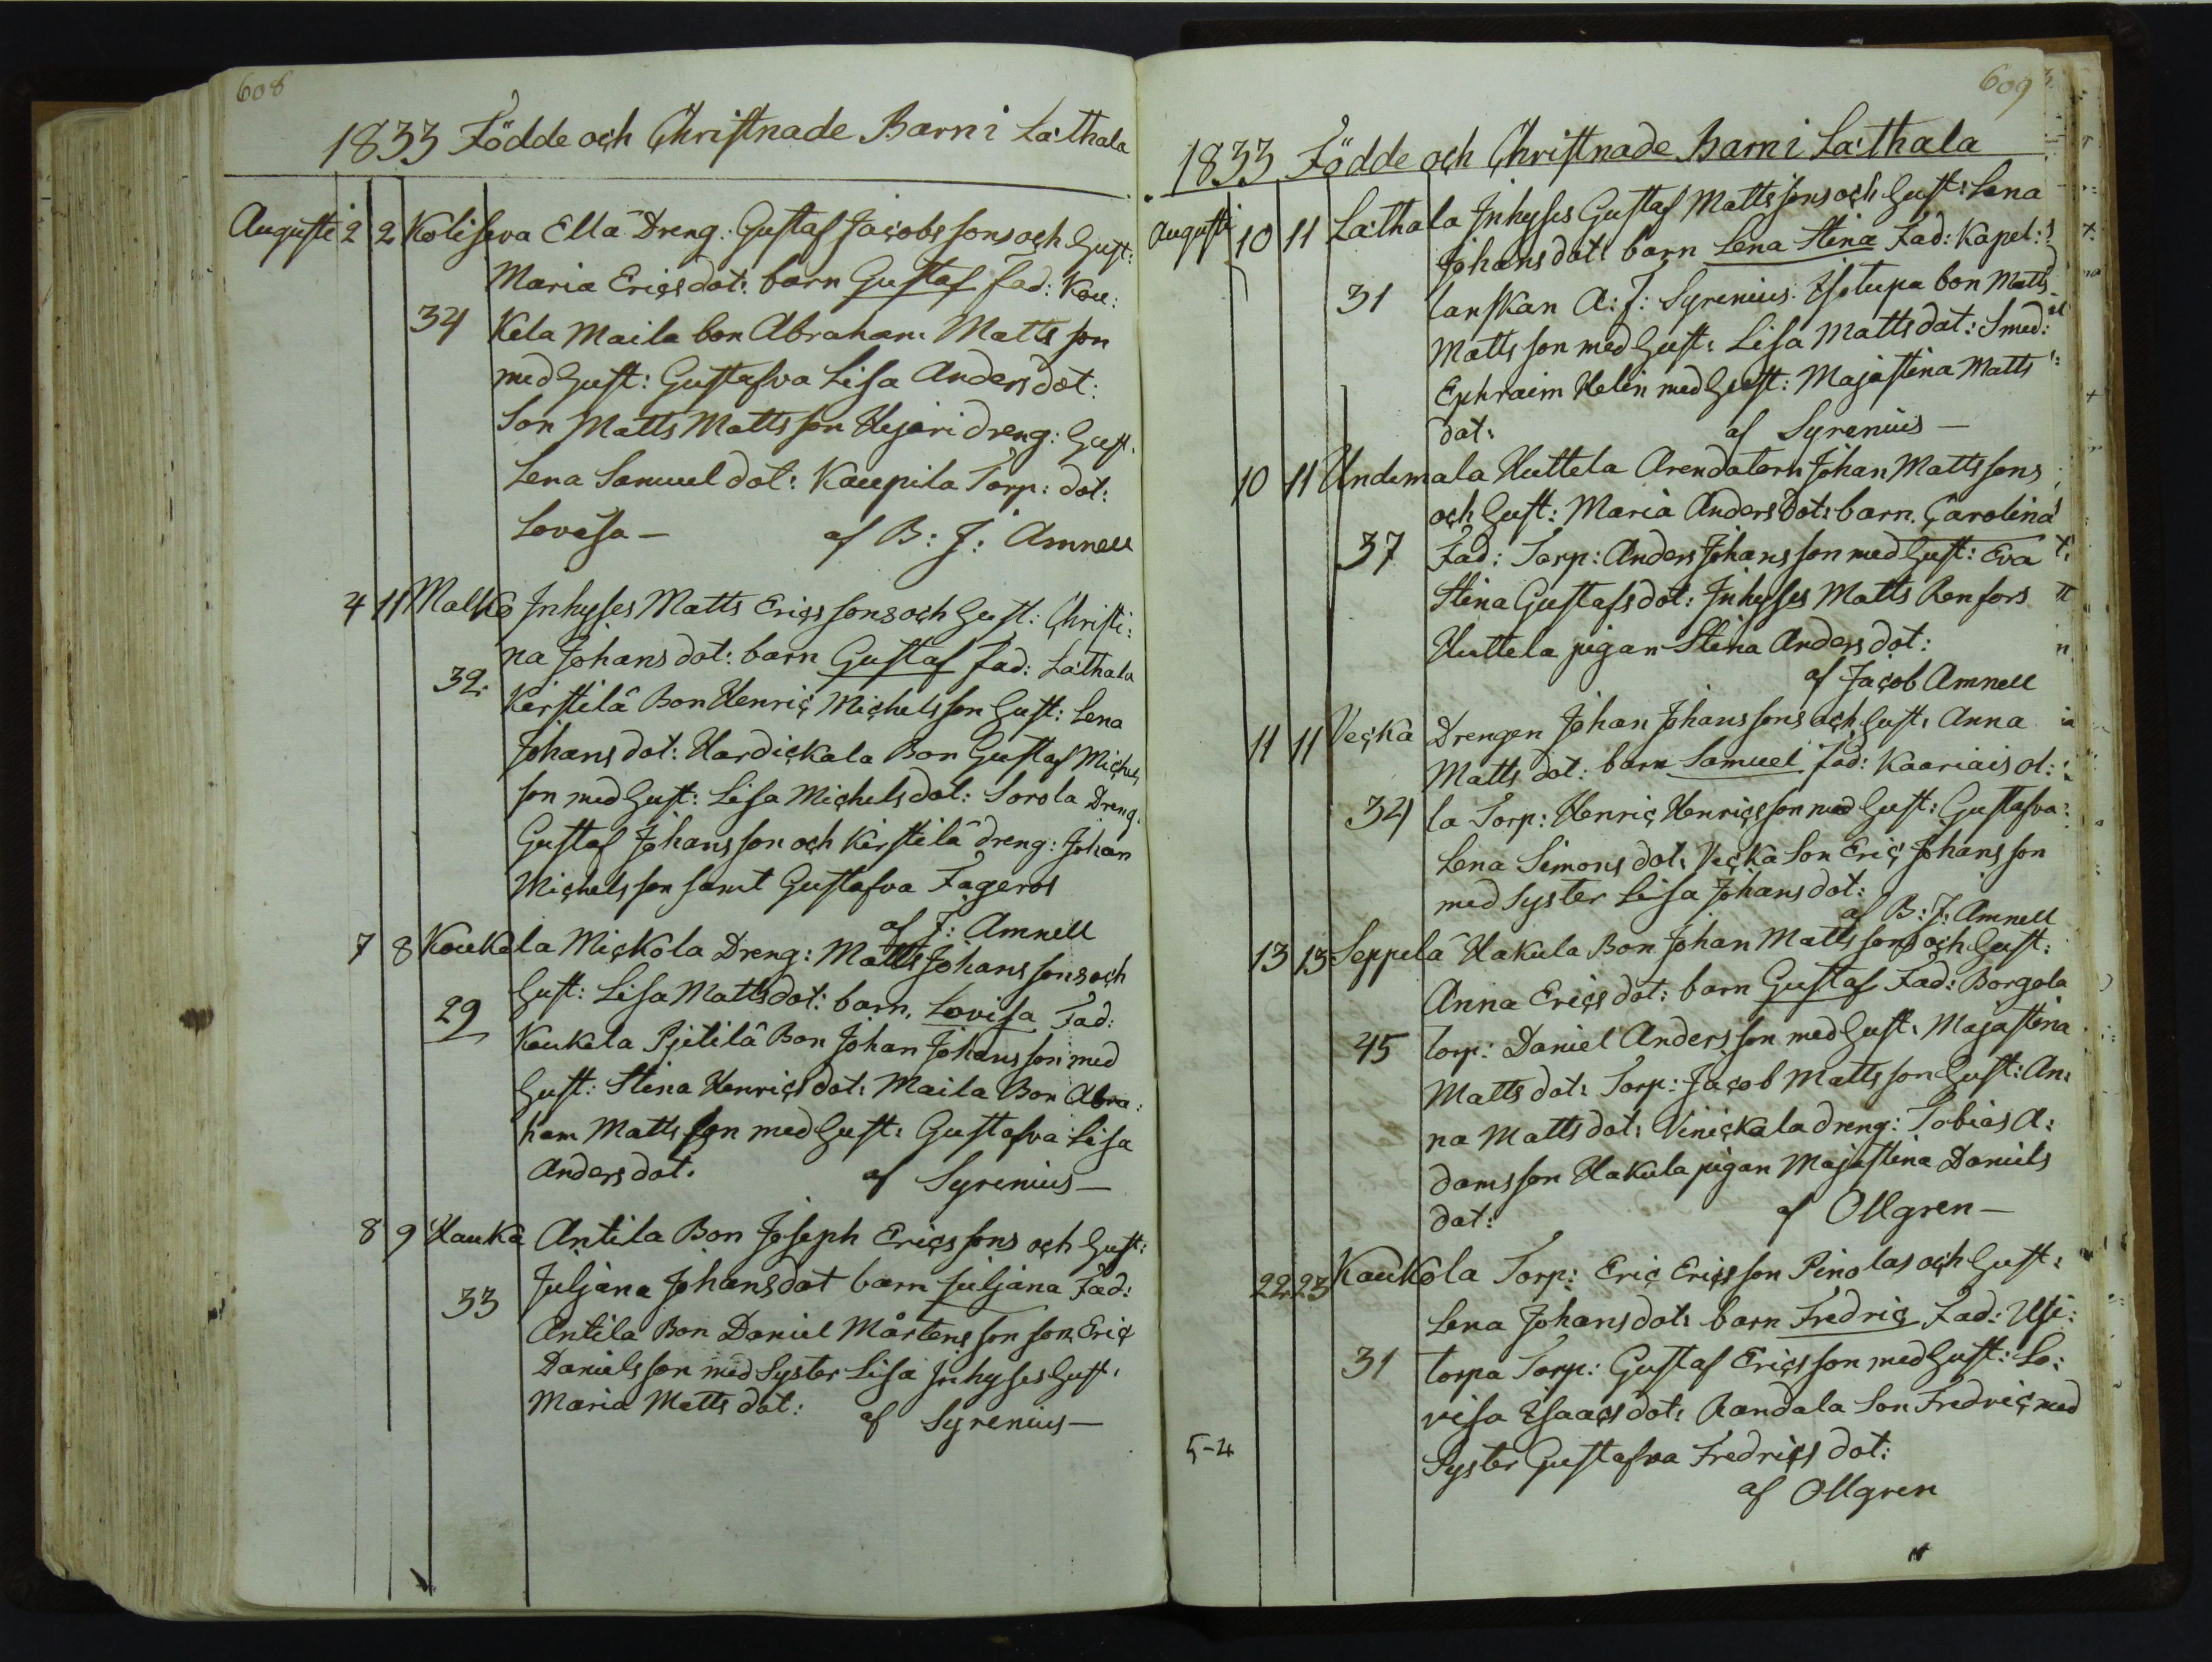 608
1833 Födde och Christnade Barn i La'thala
Augusti 2 2 Koliseva Ella Dreng: Gustaf Jacobs sons och Hust:
Maria Erics dot: barn Gustaf Fad: Kou:
34 Kela Maila bon Abraham Matts son
med Hust: Gustafva Lisa Anders dot:
Son Matts Matts son Hejari dreng: Hust.
Lena Samuel dot: Kaupila Torp: dot:
Lovisa — af B: J: Amnell
4 11 Malko Inhyses Matts Erics sons och Hust: Christi:
na Johans dot: barn Gustaf Fad: La'thala
32. Kirstilä Bon Henric Michels son Hust: Lena
Johans dot: Hardickala Bon Gustaf Michels
son med Hust: Lisa Michels dot: Sorola Dreng.
Gustaf Johans son och Kirstilä dreng: Johan
Michels son samt Gustafva Fageros
af J: Amnell
7 8 Koukela Mickola Dreng: Matts Johans sons och
Hust: Lisa Matts dot: barn. Lovisa Fad:
29 Koukela Pjetilä Bon Johan Johans son med
Hust: Stina Henrics dot: Maila Bon Abra:
ham Matts son med Hust: Gustafva Lisa
Anders dot. af Syrenius —
8 9 Hauka Antila Bon Joseph Erics sons och Hust:
Juljana Johans dot barn Juljana Fad:
33 Antila Bon Daniel Mårtens son son Eric
Daniels son med Syster Lisa Inhyses Hust.
Maria Matts dot: af Syrenius —
609
1833 Födde och Christnade Barn i La'thala
Augusti 10 11 La'thala Inhyses Gustaf Matts sons och Hust: Lena
Johans dot: barn Lena Stina Fad: Kapel:
31 lanskan A: J: Syrenius. Isotupa bon Matts
Matts son med Hust: Lisa Matts dot: Smed:
Ephraim Helin med Hust: Majastina Matts
dot: af Syrenius —
10 11 Undamala Huttela Arendatorn Johan Matts sons
och Hust: Maria Anders dot: barn. Carolina
37 Fad: Torp: Anders Johans son med Hust: Eva
Stina Gustafs dot: Inhyses Matts Renfors
Huttela pigan Stina Anders dot:
af Jacob Amnell
11 11 Vecka Drengen Johan Johans sons och Hust: Anna
Matts dot: barn Samuel Fad: Kaariais ol:
34 la Torp: Henric Henrics son med Hust: Gustafva
Lena Simons dot: Vecka Son Eric Johans son
med Syster Lisa Johans dot:
af B: J: Amnell
13 13 Seppelä Hakula Bon Johan Matts sons och Hust:
Anna Erics dot: barn Gustaf Fad: Borgola
45 torp: Daniel Anders son med Hust. Majastina
Matts dot: Torp: Jacob Matts son Hust: An:
na Matts dot: Vinickala dreng: Tobias A:
dams son Hakula pigan Majastina Daniels
dot: af Ollgren —
22 23 Kaukola Torp: Eric Erics son Pinolas och Hust:
Lena Johans dot: barn Fredric Fad: Usi:
31 torpa Torp: Gustaf Erics son med Hust: Lo:
visa Isaacs dot: Randala Son Fredric med
Syster Gustafva Fredrics dot:
af Ollgren
5-4